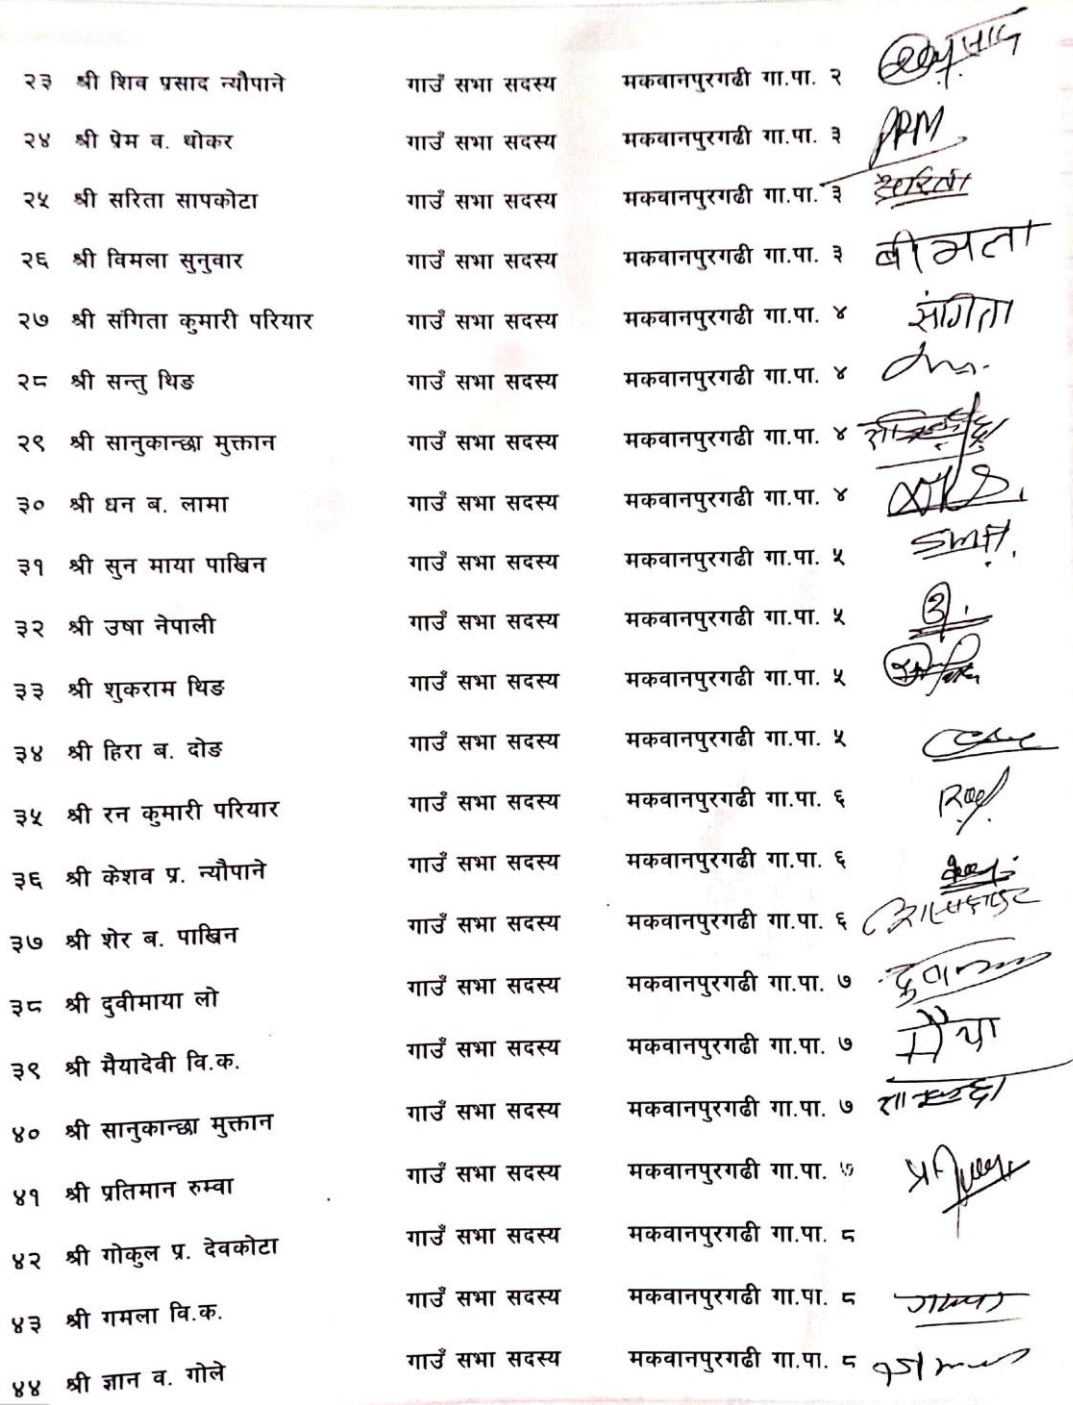 २३ श्री शिव प्रसाद न्यौपाने गाउँ सभा सदस्य मकवानपुरगढी गा.पा. २
२४ श्री प्रेम व. थोकर गाउँ सभा सदस्य मकवानपुरगढी गा.पा. ३ PRM
२५ श्री सरिता सापकोटा गाउँ सभा सदस्य मकवानपुरगढी गा.पा. ३ सरिता
२६ श्री विमला सुनुवार गाउँ सभा सदस्य मकवानपुरगढी गा.पा. ३ बीमला
२७ श्री संगिता कुमारी परियार गाउँ सभा सदस्य मकवानपुरगढी गा.पा. ४ संगिता
२८ श्री सन्तु थिङ गाउँ सभा सदस्य मकवानपुरगढी गा.पा. ४
२९ श्री सानुकान्छा मुक्तान गाउँ सभा सदस्य मकवानपुरगढी गा.पा. ४
३० श्री धन ब. लामा गाउँ सभा सदस्य मकवानपुरगढी गा.पा. ४
३१ श्री सुन माया पाखिन गाउँ सभा सदस्य मकवानपुरगढी गा.पा. ५
३२ श्री उषा नेपाली गाउँ सभा सदस्य मकवानपुरगढी गा.पा. ५
३३ श्री शुकराम थिङ गाउँ सभा सदस्य मकवानपुरगढी गा.पा. ५
३४ श्री हिरा ब. दोङ गाउँ सभा सदस्य मकवानपुरगढी गा.पा. ५
३५ श्री रन कुमारी परियार गाउँ सभा सदस्य मकवानपुरगढी गा.पा. ६
३६ श्री केशव प्र. न्यौपाने गाउँ सभा सदस्य मकवानपुरगढी गा.पा. ६
३७ श्री शेर ब. पाखिन गाउँ सभा सदस्य मकवानपुरगढी गा.पा. ६
३८ श्री दुवीमाया लो गाउँ सभा सदस्य मकवानपुरगढी गा.पा. ७
३९ श्री मैयादेवी वि.क. गाउँ सभा सदस्य मकवानपुरगढी गा.पा. ७ मैया
४० श्री सानुकान्छा मुक्तान गाउँ सभा सदस्य मकवानपुरगढी गा.पा. ७
४१ श्री प्रतिमान रुम्वा गाउँ सभा सदस्य मकवानपुरगढी गा.पा. ७
४२ श्री गोकुल प्र. देवकोटा गाउँ सभा सदस्य मकवानपुरगढी गा.पा. ८
४३ श्री गमला वि.क. गाउँ सभा सदस्य मकवानपुरगढी गा.पा. ८
४४ श्री ज्ञान व. गोले गाउँ सभा सदस्य मकवानपुरगढी गा.पा. ८